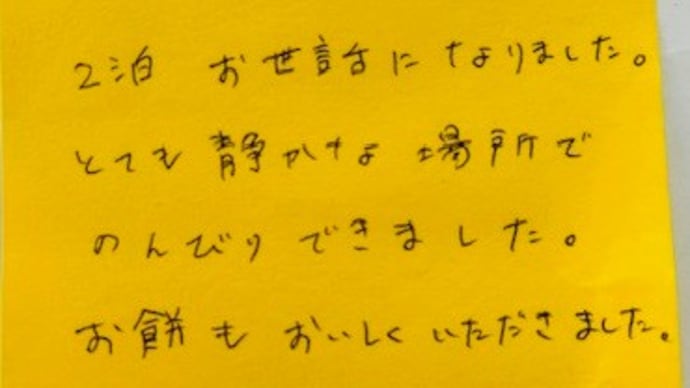 2泊 お世話になりました。
とても静かな場所で
のんびりできました。
お餅もおいしくいただきました。